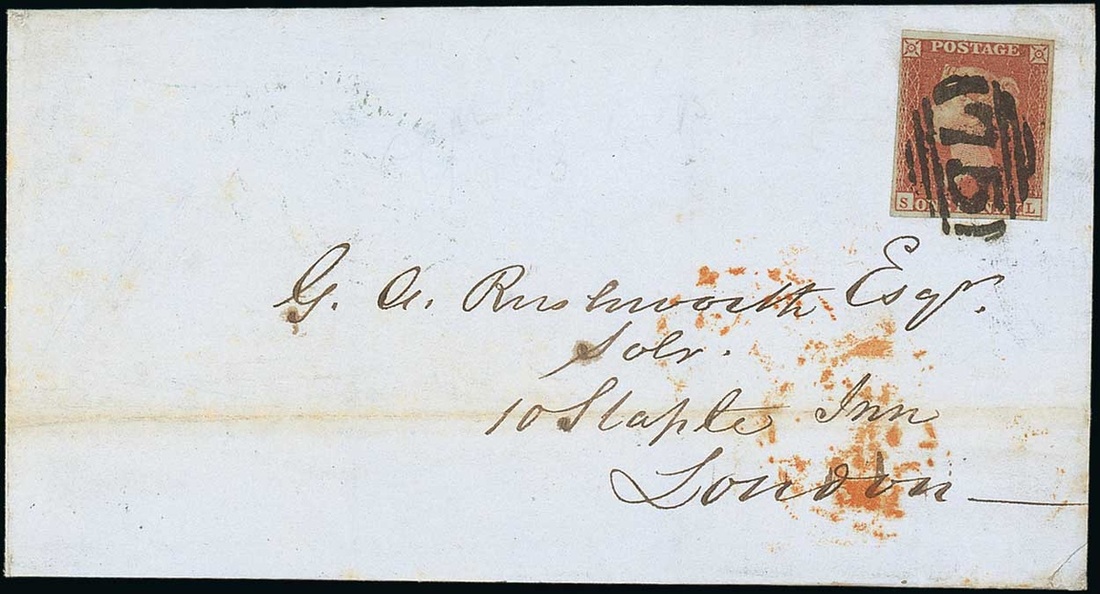 POSTAGE
S ONE PENNY L
G. A. Rushworth Esqr.
Solr.
10 Staple Inn
London